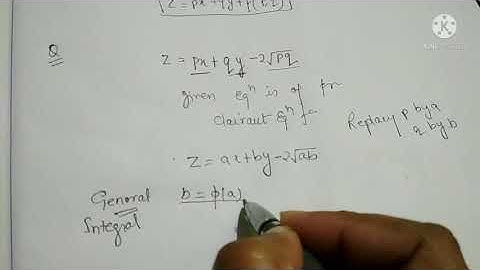 Z = px + qy + f(p,q)
Q
Z = px + qy - 2√pq
given eqⁿ is of
Clairaut Eqⁿ
Replacy p by a
q by b
Z = ax + by - 2√ab
General
Integral
b = φ(a)